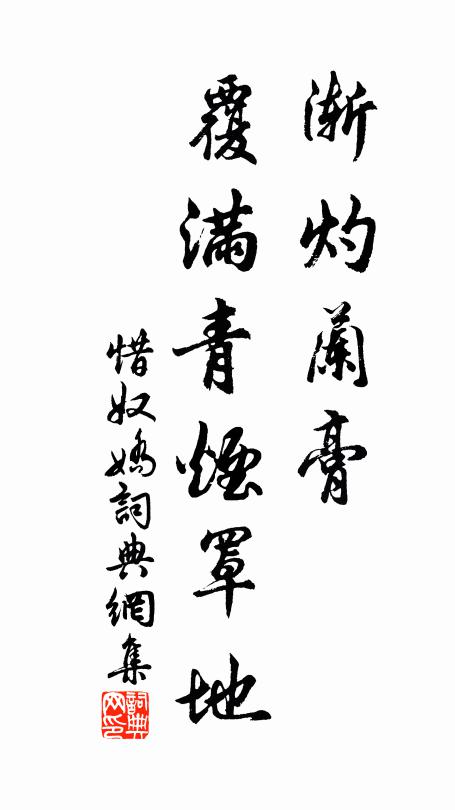 渐灼蘭膏
覆滿青煙罩地
惜奴嬌詞典網集
詞典網印